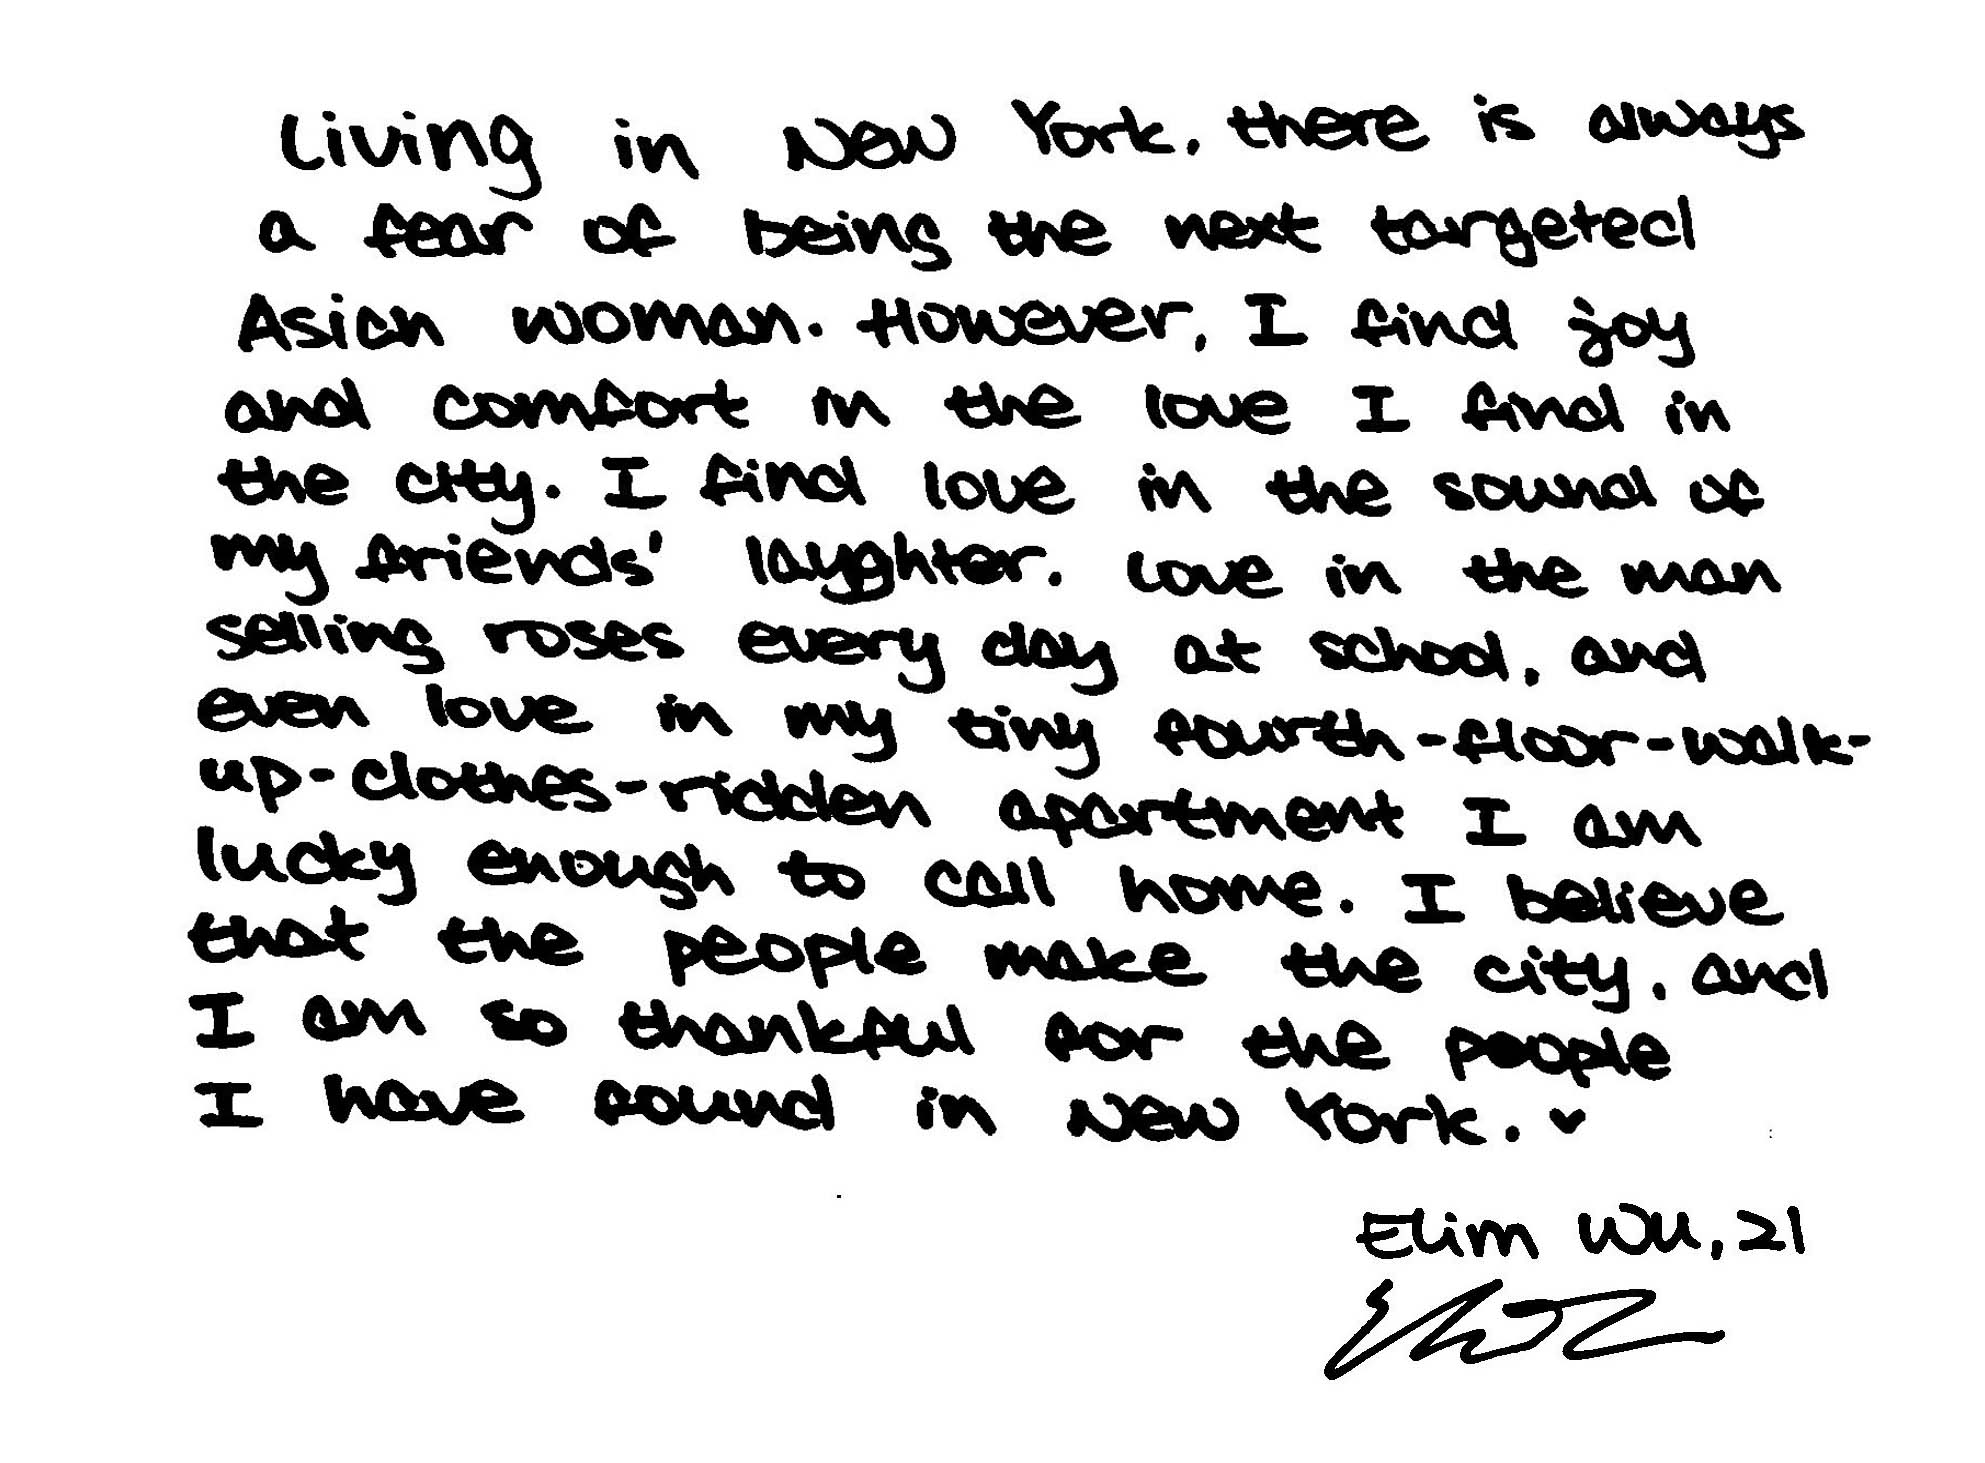 Living in New York, there is always
a fear of being the next targeted
Asian woman. However, I find joy
and comfort in the love I find in
the city. I find love in the sound of
my friends' laughter. Love in the man
selling roses every day at school, and
even love in my tiny fourth-floor-walk-
up-clothes-ridden apartment I am
lucky enough to call home. I believe
that the people make the city, and
I am so thankful for the people
I have found in New York. ♥
Elim Wu, 21